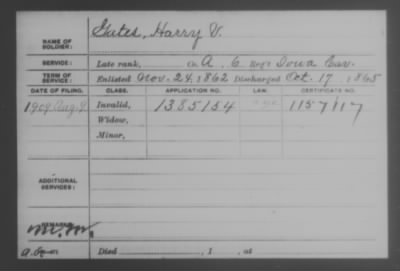 NAME OF SOLDIER: Gates, Harry V.
SERVICE: Late rank, Co. A, 6 Reg't Iowa Cav.
TERM OF SERVICE: Enlisted Nov. 24, 1862 Discharged Oct. 17, 1865
DATE OF FILING. CLASS. APPLICATION NO. LAW. CERTIFICATE NO.
1909 Aug. 9 Invalid, 1385154 1157117
Widow,
Minor,
ADDITIONAL SERVICES:
REMARKS:
Died , 1 , at